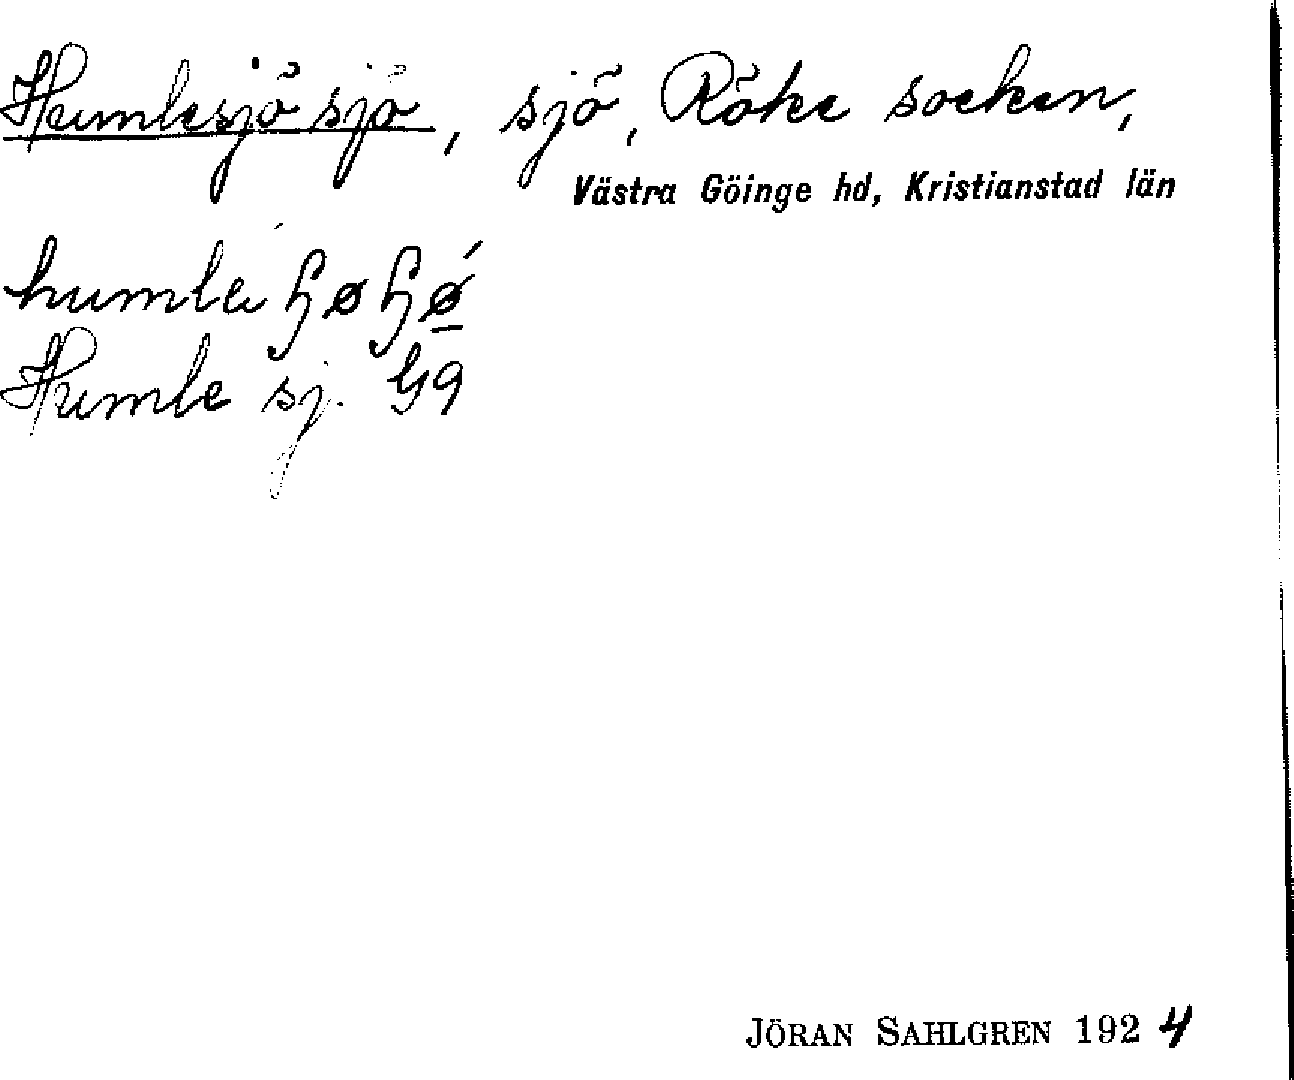 Humlesjö sjö, sjö, Röke socken,
Västra Göinge hd, Kristianstad län
humla ɧøɧǿ
Humle sj. G9
JÖRAN SAHLGREN 1924